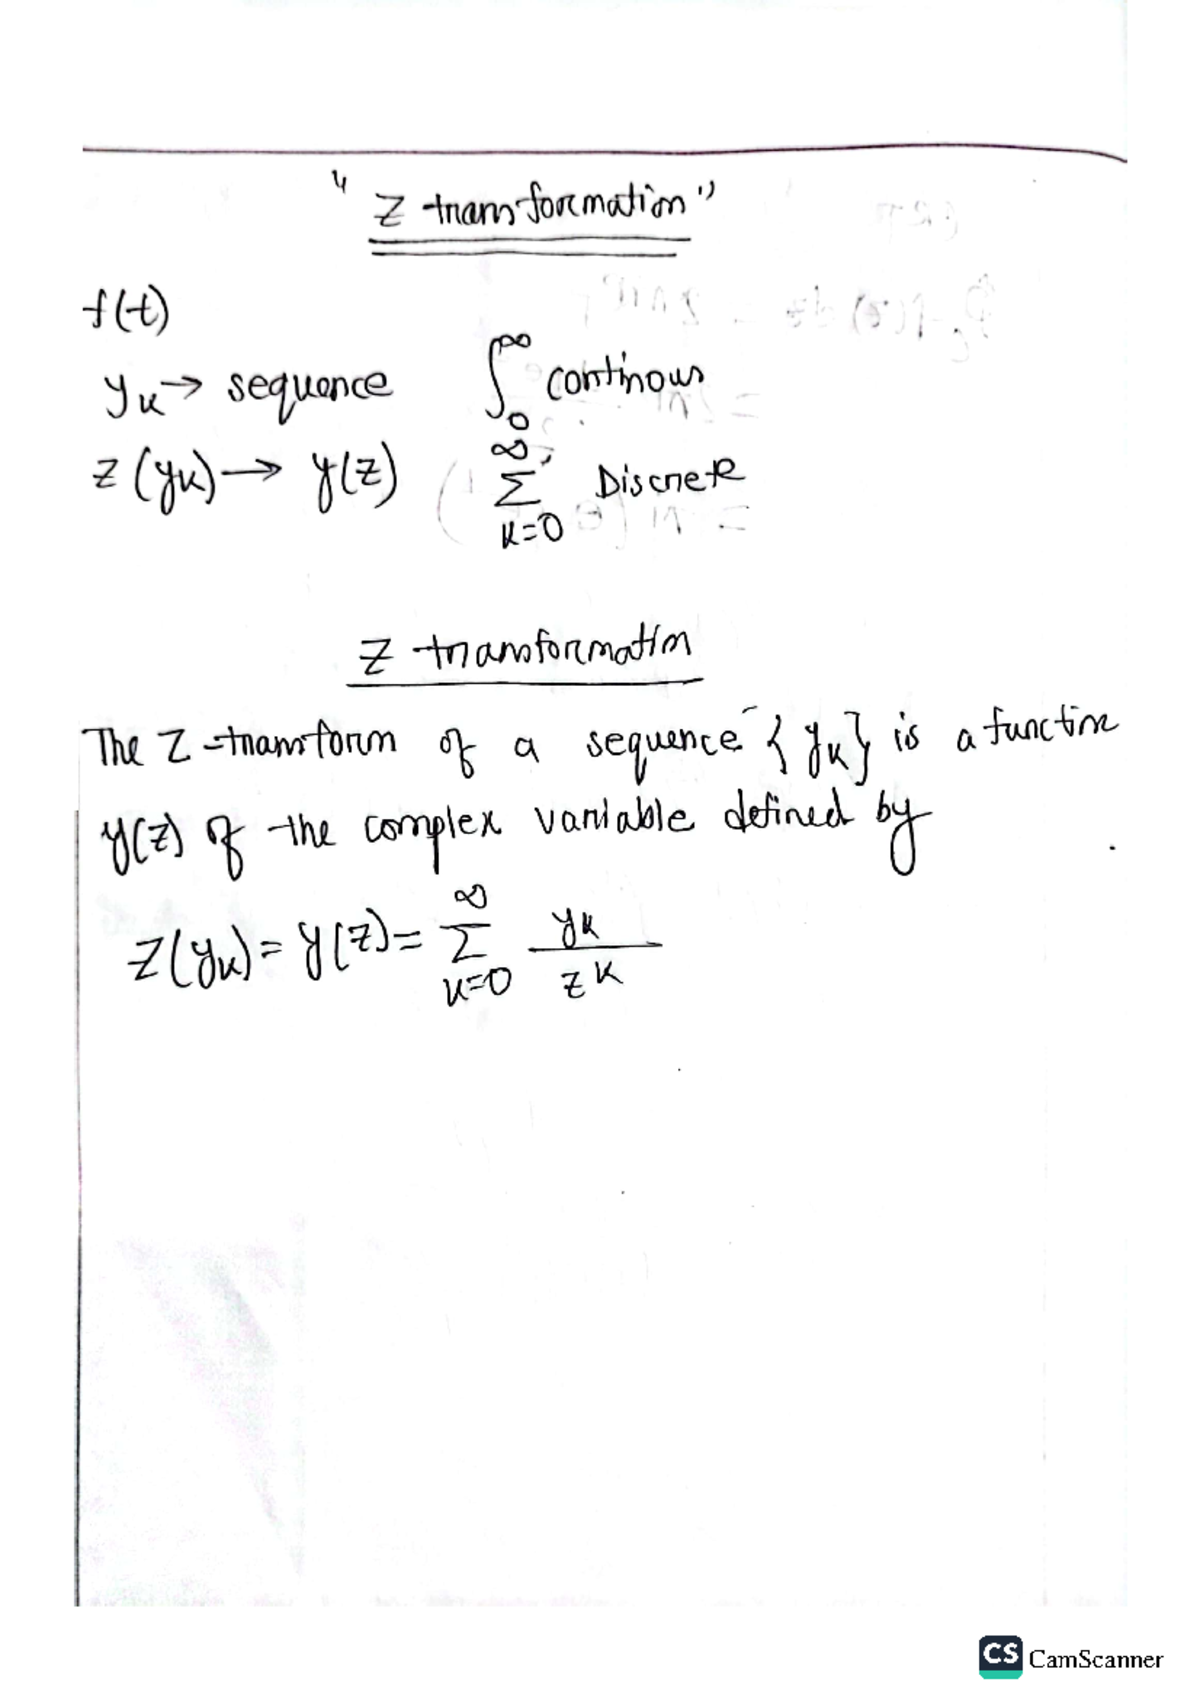 "Z transformation"
f(t)
yk → sequence ∫₀^∞ continous
z(yk) → y(z) ∞ Σ k=0 Discrete
Z transformation
The Z-transform of a sequence {yk} is a function
y(z) of the complex variable defined by
Z(yk) = y(z) = ∞ Σ k=0 yk / z^k
CS CamScanner